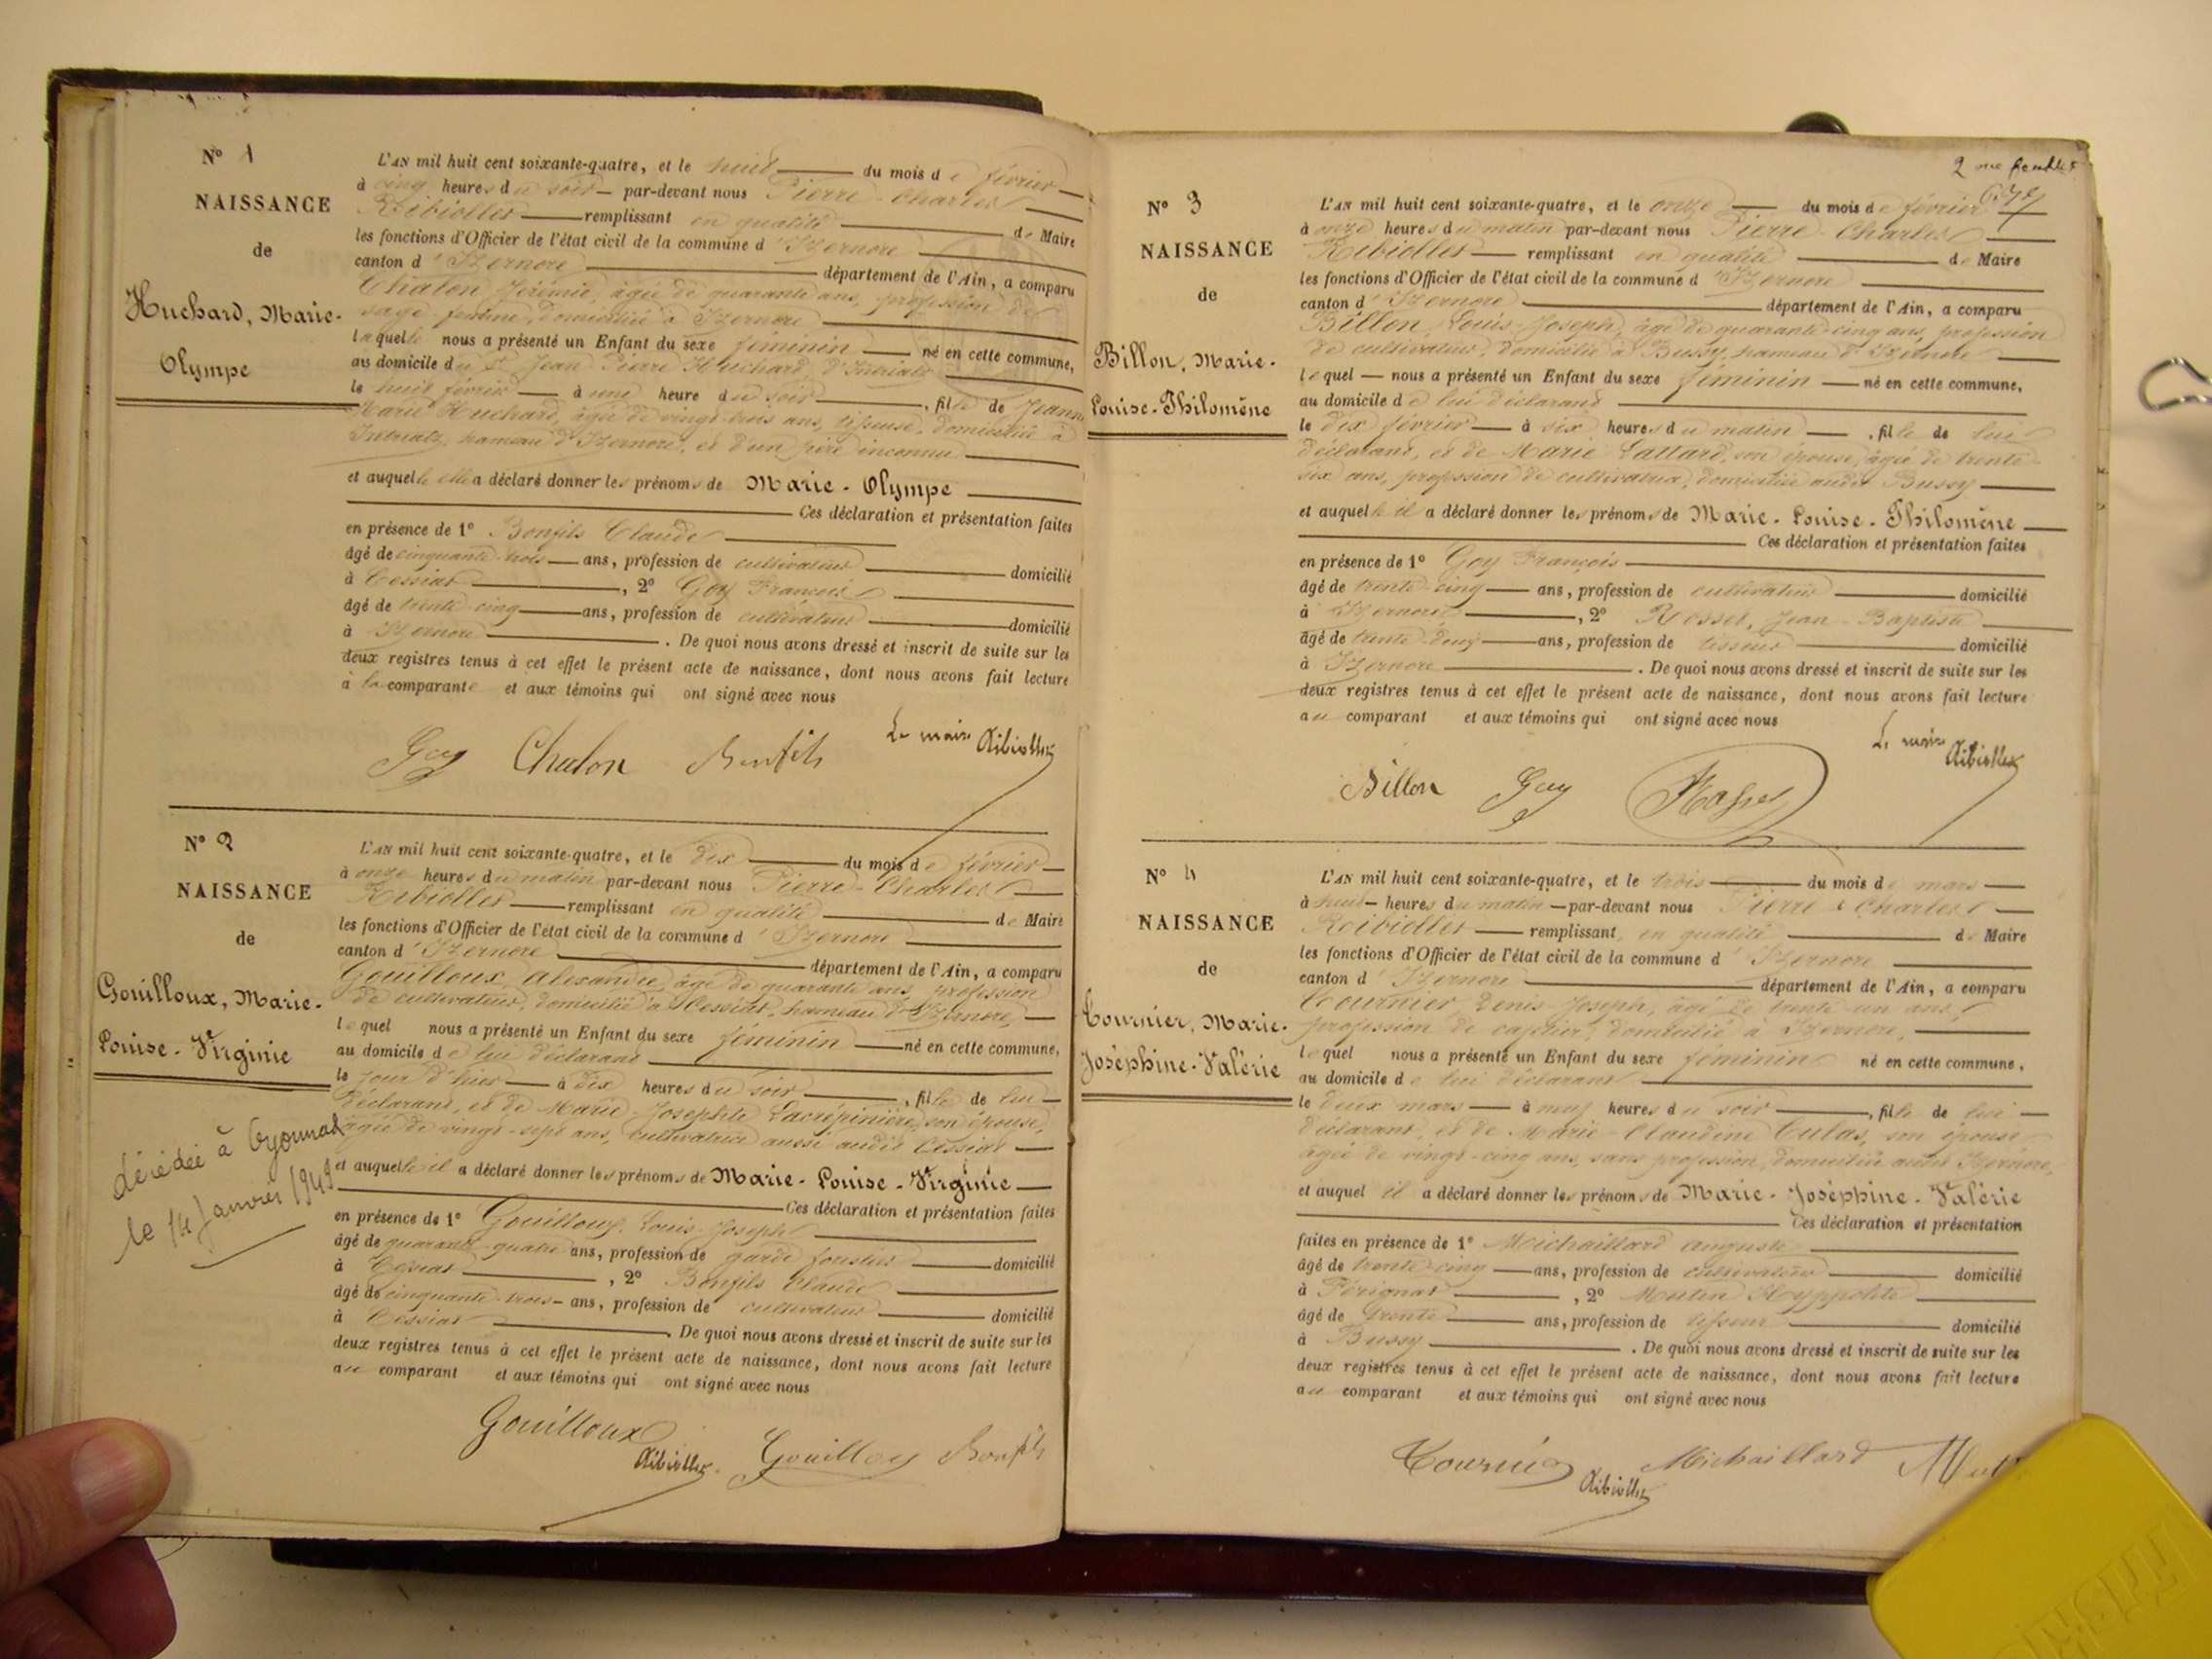 N° 1
NAISSANCE
de
Huchard, Marie-
Olympe
L'AN mil huit cent soixante-quatre, et le huit du mois de février
à cinq heures du soir par-devant nous Pierre-Charles
Ribiollet remplissant en qualité de Maire
les fonctions d'Officier de l'état civil de la commune d'Izernore
canton d'Izernore département de l'Ain, a comparu
Chalon Jérémie, âgée de quarante ans, profession de
sage-femme, domiciliée à Izernore
laquelle nous a présenté un Enfant du sexe féminin né en cette commune,
au domicile du Sr Jean Pierre Huchard, d'Intriatz
le huit février à une heure du soir, fille de Jeanne
Marie Huchard, âgée de vingt-trois ans, tisseuse, domiciliée à
Intriatz, hameau d'Izernore, et d'un père inconnu
et auquelle elle a déclaré donner les prénoms de Marie-Olympe
Ces déclaration et présentation faites
en présence de 1° Bonfils Claude
âgé de cinquante-trois ans, profession de cultivateur domicilié
à Cessiat, 2° Goy François
âgé de trente-cinq ans, profession de cultivateur domicilié
à Izernore. De quoi nous avons dressé et inscrit de suite sur les
deux registres tenus à cet effet le présent acte de naissance, dont nous avons fait lecture
à la comparante et aux témoins qui ont signé avec nous
Goy Chalon Bonfils Le maire Ribiollet
N° 2
NAISSANCE
de
Gouilloux, Marie-
Louise-Virginie
décédée à Oyonnax
le 14 Janvier 1949
L'AN mil huit cent soixante-quatre, et le dix du mois de février
à onze heures du matin par-devant nous Pierre-Charles
Ribiollet remplissant en qualité de Maire
les fonctions d'Officier de l'état civil de la commune d'Izernore
canton d'Izernore département de l'Ain, a comparu
Gouilloux, Alexandre, âgé de quarante ans, profession
de cultivateur, domicilié à Cessiat, hameau d'Izernore,
lequel nous a présenté un Enfant du sexe féminin né en cette commune,
au domicile de lui déclarant
le jour d'hier à dix heures du soir, fille de lui
déclarant, et de Marie-Josephte Lacrépinière, son épouse,
âgée de vingt-sept ans, cultivatrice aussi audit Cessiat
et auquelle il a déclaré donner les prénoms de Marie-Louise-Virginie
Ces déclaration et présentation faites
en présence de 1° Gouilloux, Louis-Joseph
âgé de quarante-quatre ans, profession de garde forestier domicilié
à Cessiat, 2° Bonfils Claude
âgé de cinquante-trois ans, profession de cultivateur domicilié
à Cessiat. De quoi nous avons dressé et inscrit de suite sur les
deux registres tenus à cet effet le présent acte de naissance, dont nous avons fait lecture
au comparant et aux témoins qui ont signé avec nous
Gouilloux Ribiollet Gouilloux Bonfils
N° 3
NAISSANCE
de
Billon, Marie-
Louise-Philomène
L'AN mil huit cent soixante-quatre, et le onze du mois de février
à onze heures du matin par-devant nous Pierre-Charles
Ribiollet remplissant en qualité de Maire
les fonctions d'Officier de l'état civil de la commune d'Izernore
canton d'Izernore département de l'Ain, a comparu
Billon, Louis-Joseph, âgé de quarante-cinq ans, profession
de cultivateur, domicilié à Bussy, hameau d'Izernore
lequel nous a présenté un Enfant du sexe féminin né en cette commune,
au domicile de lui déclarant
le dix février à six heures du matin, fille de lui
déclarant, et de Marie Lallard, son épouse, âgée de trente-
six ans, profession de cultivatrice, domiciliée audit Bussy
et auquelle il a déclaré donner les prénoms de Marie-Louise-Philomène
Ces déclaration et présentation faites
en présence de 1° Goy François
âgé de trente-cinq ans, profession de cultivateur domicilié
à Izernore, 2° Rosset, Jean-Baptiste
âgé de trente-deux ans, profession de tisseur domicilié
à Izernore. De quoi nous avons dressé et inscrit de suite sur les
deux registres tenus à cet effet le présent acte de naissance, dont nous avons fait lecture
au comparant et aux témoins qui ont signé avec nous
Billon Goy Rosset Le maire Ribiollet
N° 4
NAISSANCE
de
Tournier, Marie-
Joséphine-Valérie
L'AN mil huit cent soixante-quatre, et le trois du mois de mars
à huit heures du matin par-devant nous Pierre-Charles
Ribiollet remplissant en qualité de Maire
les fonctions d'Officier de l'état civil de la commune d'Izernore
canton d'Izernore département de l'Ain, a comparu
Tournier, Denis-Joseph, âgé de trente-un ans,
profession de cafetier, domicilié à Izernore,
lequel nous a présenté un Enfant du sexe féminin né en cette commune,
au domicile de lui déclarant
le deux mars à neuf heures du soir, fille de lui
déclarant, et de Marie-Claudine Tulas, son épouse
âgée de vingt-cinq ans, sans profession, domiciliée audit Izernore,
et auquel il a déclaré donner les prénoms de Marie-Joséphine-Valérie
Ces déclaration et présentation
faites en présence de 1° Michaillard Auguste
âgé de trente-cinq ans, profession de cultivateur domicilié
à Pérignat, 2° Mutin Hyppolite
âgé de trente ans, profession de tisseur domicilié
à Bussy. De quoi nous avons dressé et inscrit de suite sur les
deux registres tenus à cet effet le présent acte de naissance, dont nous avons fait lecture
au comparant et aux témoins qui ont signé avec nous
Tournier Ribiollet Michaillard